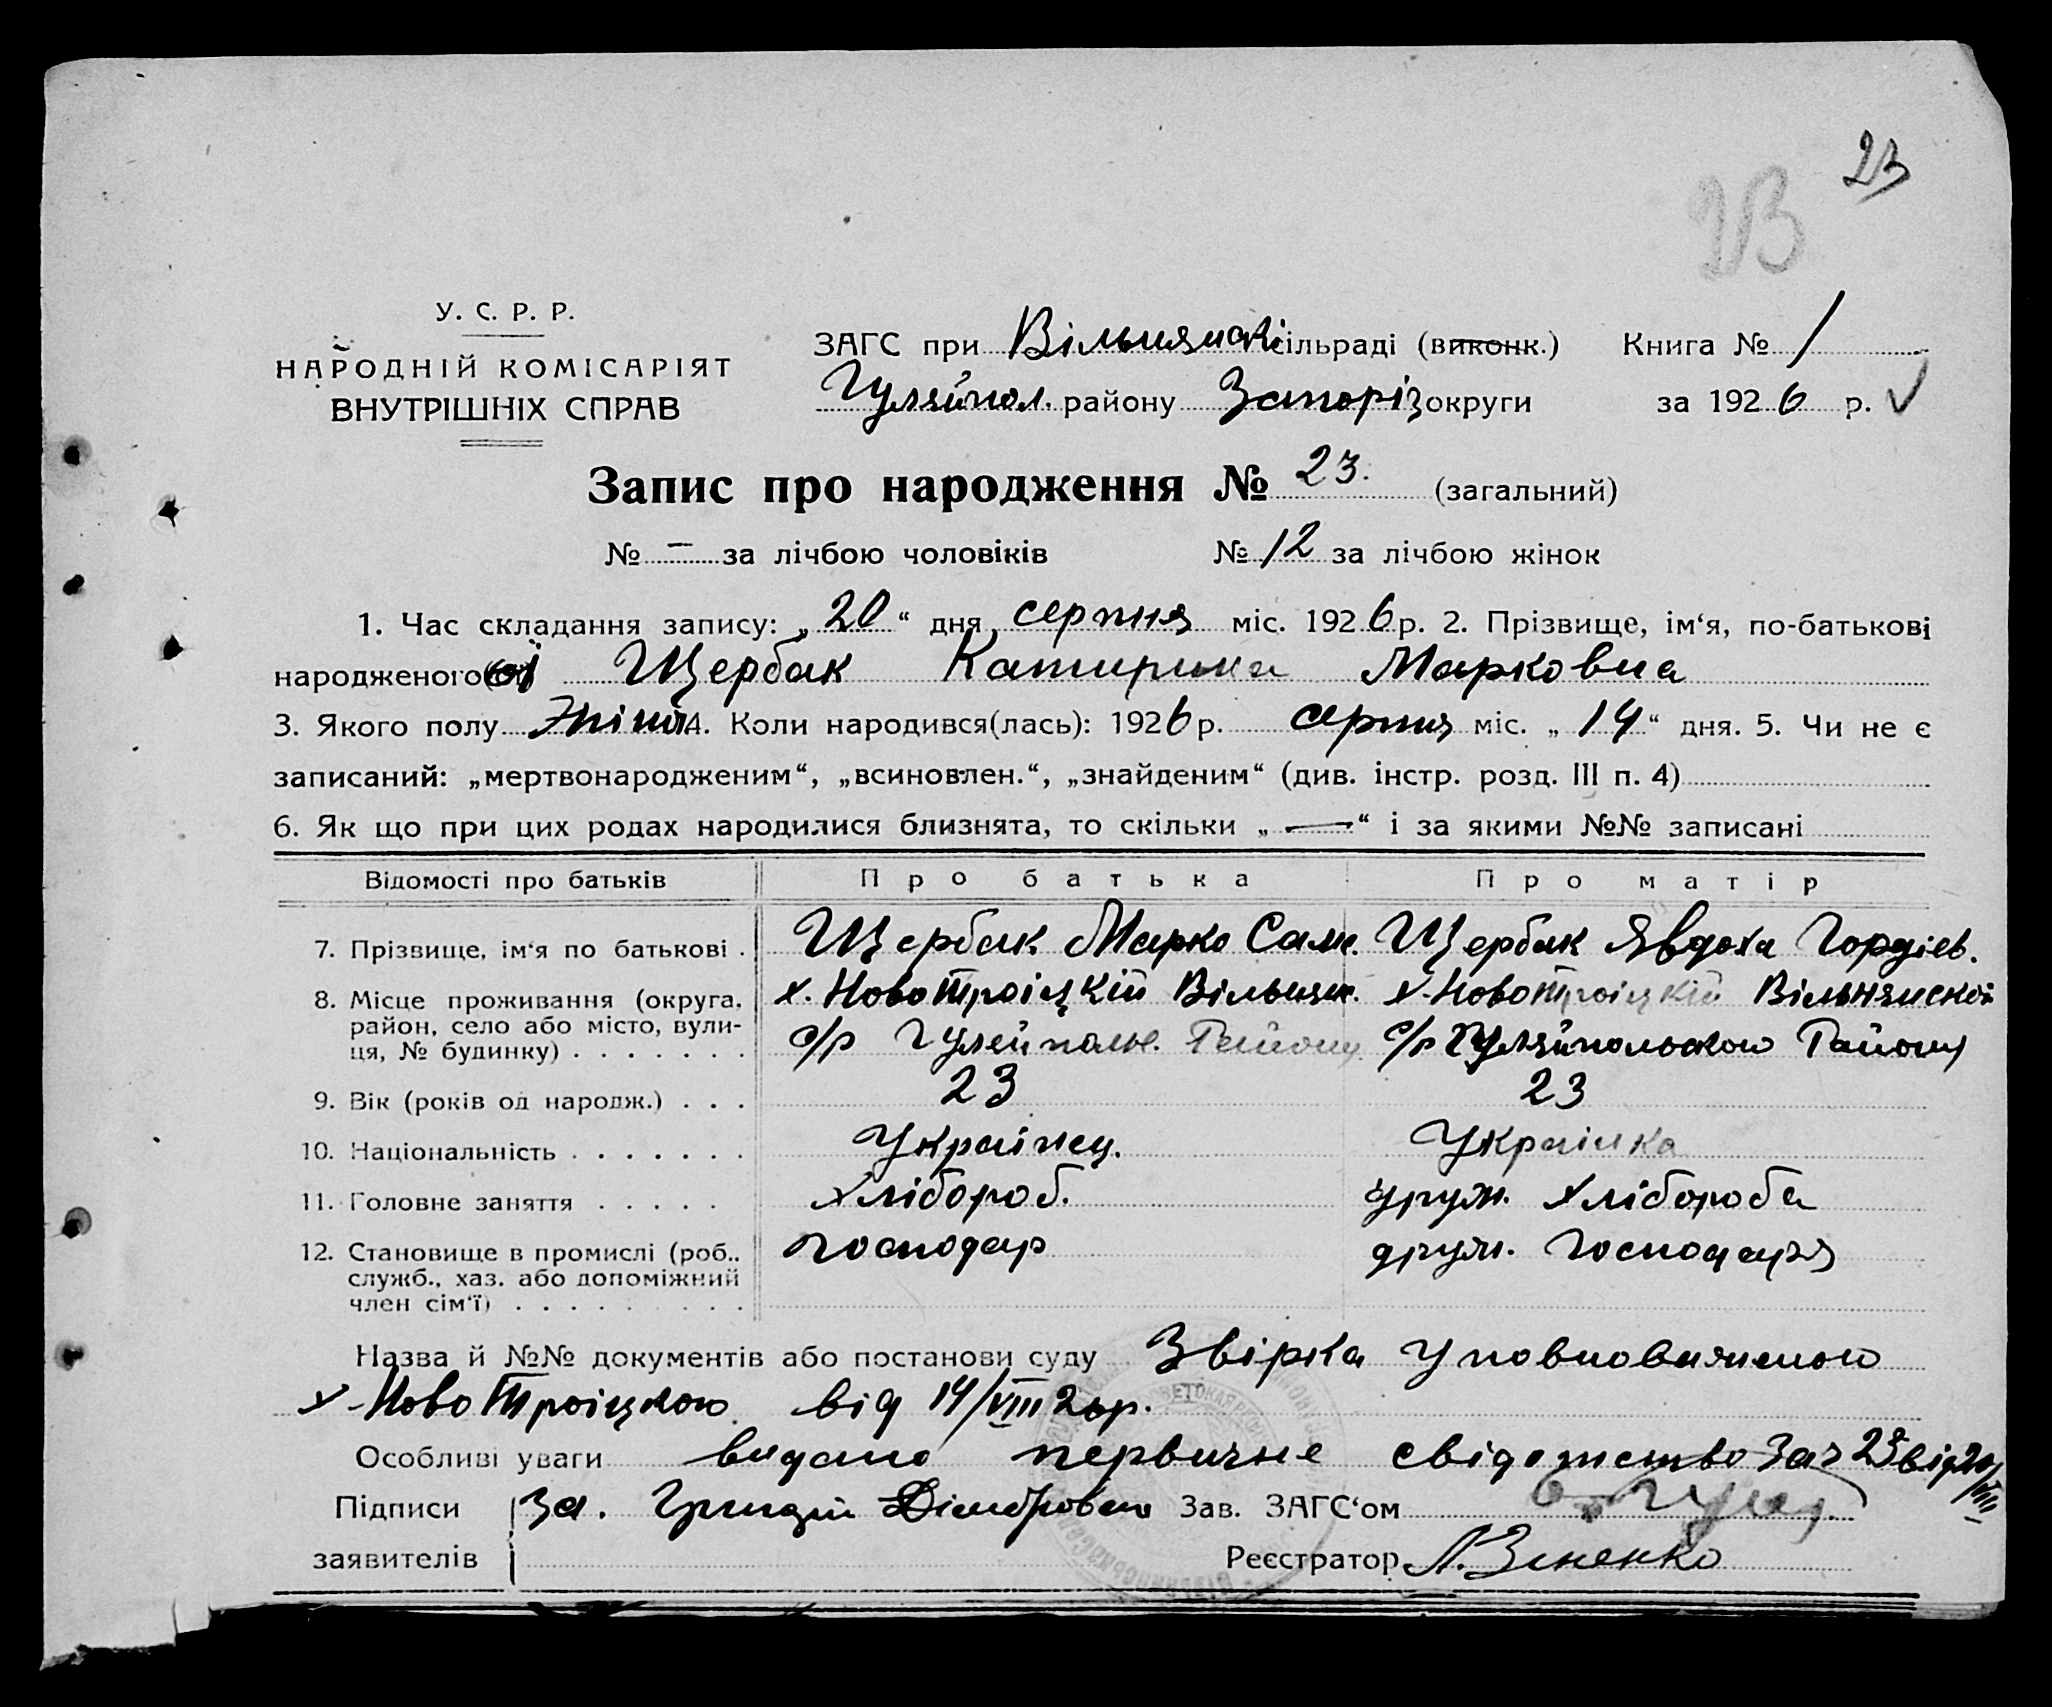 23
23
У. С. Р. Р.
НАРОДНІЙ КОМІСАРІЯТ
ВНУТРІШНІХ СПРАВ
ЗАГС при Вільнянскі сільраді (виконк.) Книга № 1
Гуляйпол. району Запоріз округи за 1926 р.
Запис про народження № 23. (загальний)
№ – за лічбою чоловіків № 12 за лічбою жінок
1. Час складання запису: „20“ дня серпня міс. 1926 р. 2. Прізвище, ім‘я, по-батькові
народженого Щербак Катирина Марковна
3. Якого полу Жіноч 4. Коли народився(лась): 1926 р. серпня міс. „14“ дня. 5. Чи не є
записаний: „мертвонародженим“, „всиновлен.“, „знайденим“ (див. інстр. розд. III п. 4)
6. Як що при цих родах народилися близнята, то скільки „—“ і за якими №№ записані
Відомості про батьків Про батька Про матір
7. Прізвище, ім‘я по батькові . Щербак Марко Сам. Щербак Явдоха Гордіев.
8. Місце проживання (округа, х. НовоТроіцкій Вільнян. х. НовоТроіцкій Вільнянскої
район, село або місто, вули- с/р Гулейполь. Району с/р Гуляйпольского Району
ця, № будинку) . . . . . . .
9. Вік (років од народж.) . . . 23 23
10. Національність . . . . . . . Українец. Українка
11. Головне заняття . . . . . Хлібороб. друж. Хлібороба
12. Становище в промислі (роб., господар друж. господаря
служб., хаз. або допоміжний
член сім‘ї) . . . . . . . . .
Назва й №№ документів або постанови суду Звірка Уповноваженого
х. НовоТроіцкого від 14/VIII 26р.
Особливі уваги видано первичне свідотство за № 23 від 20/VIII
Підписи За. Зав. ЗАГС‘ом
заявителів Реєстратор Л. Зіненко